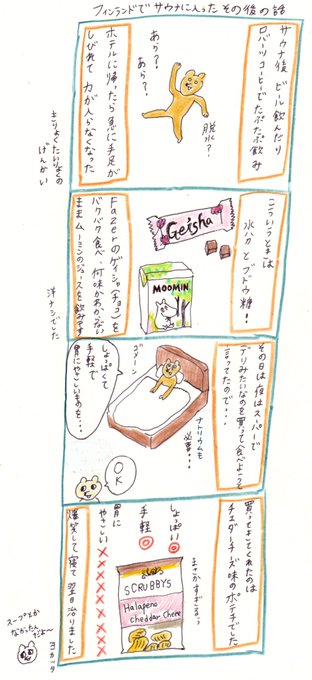 フィンランドでサウナに入ったその後の話
サウナ後ビール飲んだり
ロバーツコーヒーでたぷたぷ飲み
あら?
あら?
脱水?
ホテルに帰ったら急に手足が
しびれて力が入らなくなった
きりょくたいりょくの
げんかい
こういうときは
水分とブドウ糖!
Geisha
MOOMIN
Fazerのゲイシャ(チョコ)を
バクバク食べ、何味かわからない
ままムーミンのジュースを飲みです
洋ナシでした
その日は夜はスーパーで
デリみたいなのを買って食べようと
言ってたので・・・
ナトリウムも
必要・・・
しょっぱくて
手軽で
胃にやさしいものを・・・
OK
買ってきてくれたのは
チェダーチーズ味のポテチでした
まさかすぎるっ
しょっぱい◎
手軽◎
胃に
やさしい×××××××
SCRUBBYS
Halapeno
cheddar Cheese
爆笑して寝て翌日治りました
スープとか
なかったん
だよ〜
ヨカッタ